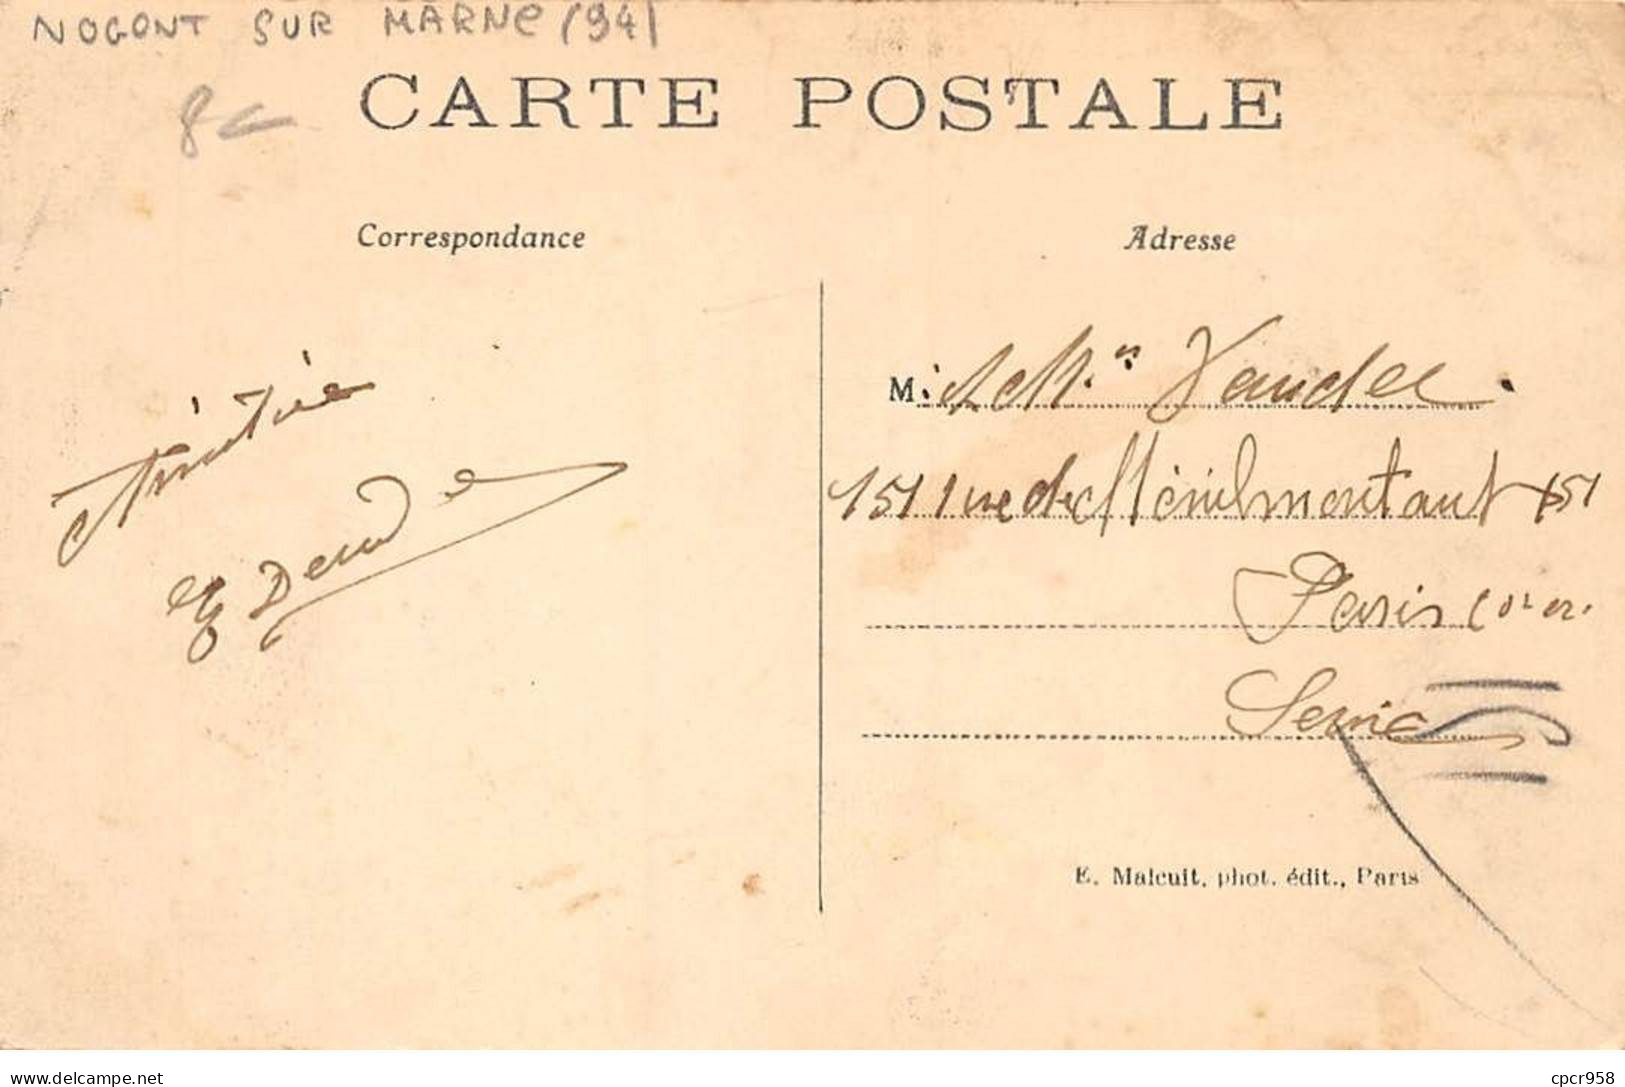 NOGENT SUR MARNE (94)
8€
CARTE POSTALE
Correspondance
Adresse
Amitiés
M.
151 rue de Ménilmontant 151
Paris
Seine
E. Malcuit, phot. édit., Paris
delcampe.net
cpcr958